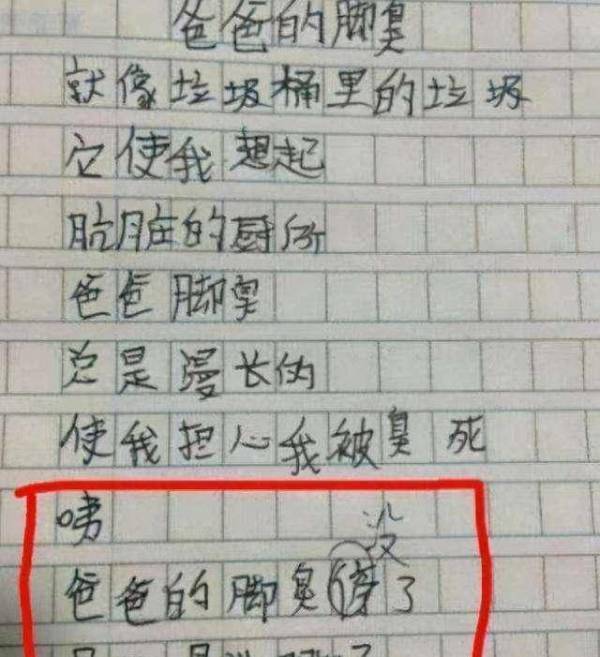 爸爸的脚臭
就像垃圾桶里的垃圾
它使我想起
肮脏的厨所
爸爸脚臭
总是漫长的
使我担心我被臭死
咦
没
爸爸的脚臭了